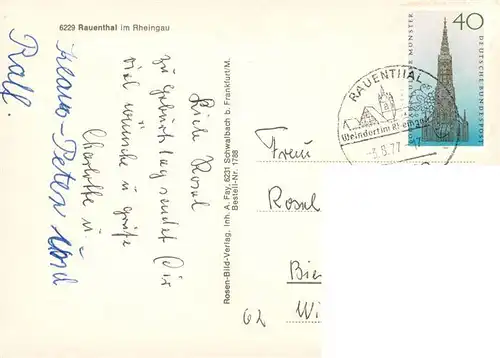 6229 Rauenthal im Rheingau
Liebe Rosel
zu Geburtstag sendet Dir
viel wünsche u. grüße
Charlotte u.
Klaus-Peter und
Ralf.
Rosen-Bild-Verlag, Inh. A. Fay, 6231 Schwalbach b. Frankfurt/M.
Bestell-Nr. 1788
40
DEUTSCHE BUNDESPOST
MÜNSTER
RAUENTHAL
Weindorf im Rheingau
8.77-17
Frau
Rosel
Bie
62 Wi